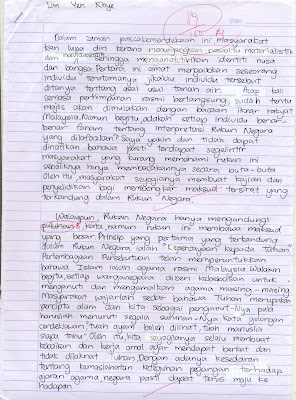 Lim Yen Khye
19
Date:
Dalam zaman pascakemerdekaan ini masyarakat
kian lupa diri kerana menunjangkan materialistik
dan sehingga mengenaktirikan identiti nusa
dan bangsa. Perkara ini amat mengaibkan seseorang
individu terutamanya jikalau individu tersebut
ditanya tentang asal usul tanah air. Atap tali
semasa perhimpunan rasmi berlangsung sudah tentu
majlis akan dimulakan dengan bacaan ikrar rakyat
Malaysia. Namun begitu adakah setiap individu benar-
benar faham tentang interpretasi Rukun Negara
yang diikrarkan? Saya yakin dan tidak dapat
dinafikan bahawa pasti terdapat segelintir
masyarakat yang kurang memahami rukun ini
sebaliknya hanya membacakannya secara buta-buta
Oleh itu, masyarakat seyogianya membuat kajian dan
penyelidikan bagi membongkar maksud tersirat yang
terkandung dalam Rukun Negara.
Walaupun Rukun Negara hanya mengandungi
puluhan kata, namun rukun ini membawa maksud
yang besar. Prinsip yang pertama yang terkandung
dalam Rukun Negara ialah "Kepercayaan kepada Tuhan".
Perlembagaan Persekutuan telah memperuntukkan
bahawa Islam ialah agama rasmi Malaysia. Walaupun
begitu, setiap warganegara diberi kebebasan untuk
menganuti dan mengamalkan agama masing-masing
Masyarakat wajarlah sedar bahawa Tuhan merupakan
pencipta alam dan kita sebagai penganut-Nya pula
haruslah menurut segala suruhan-Nya. Kata golongan
cendekiawan, "tuah ayam boleh dilihat, tuah manusia
siapa tahu". Oleh itu, kita seyogianya selalu membuat
kebaikan dan kerja amal agar mendapat berkat dan
tidak dilaknat Tuhan. Dengan adanya kesedaran
tentang kemaslahatan keteguhan pegangan terhadap
ajaran agama, negara pasti dapat terus maju ke
hadapan.